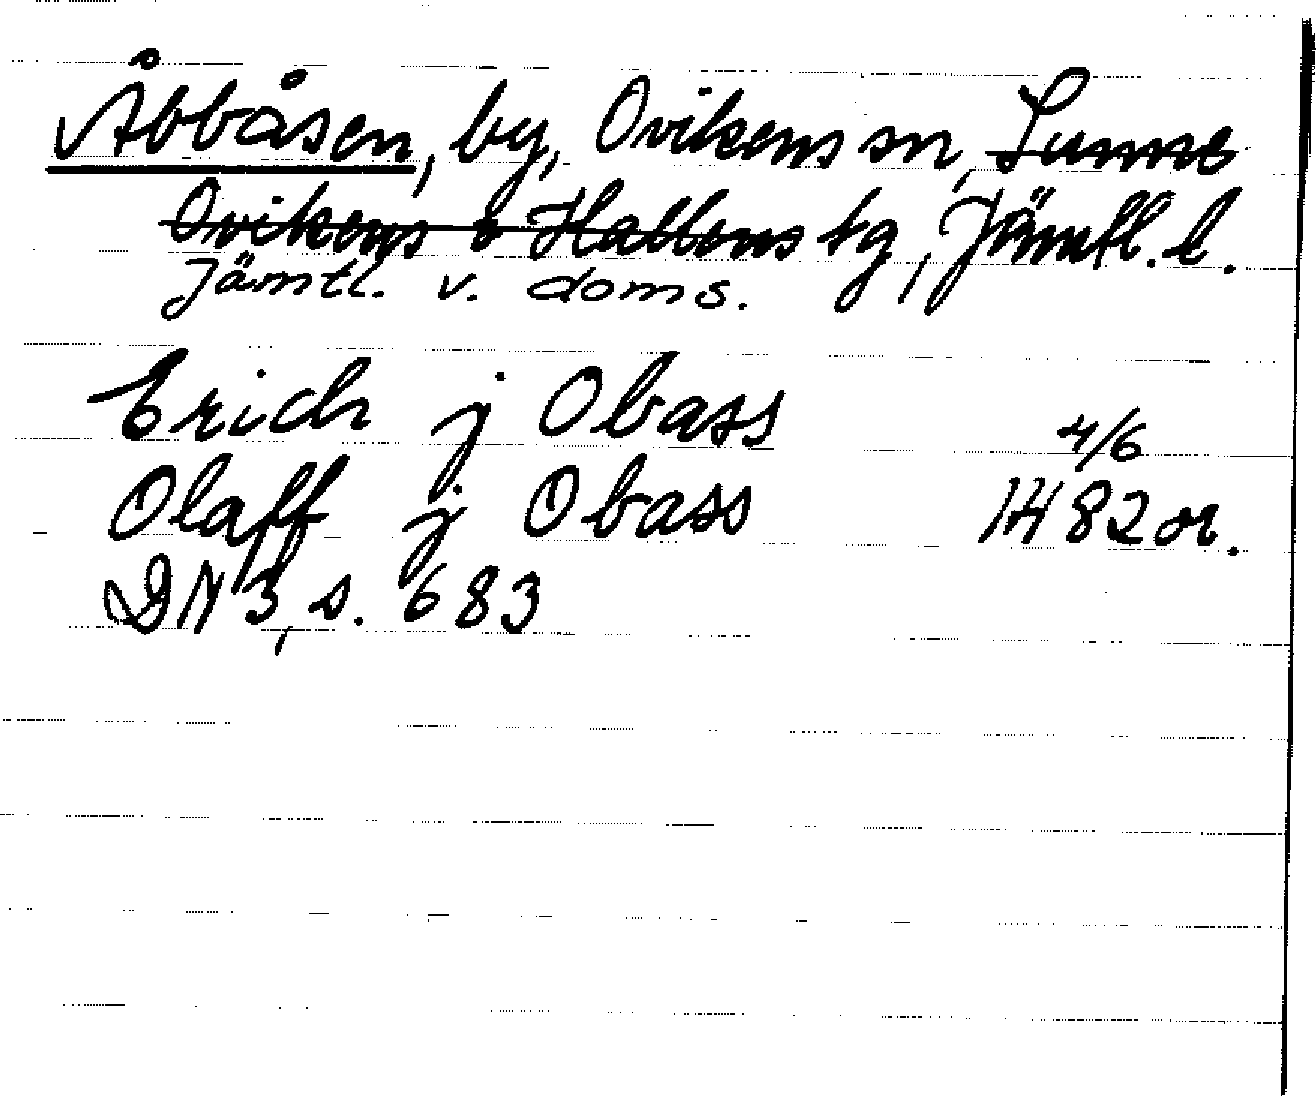 Åbbåsen, by, Ovikens sn, Sunne
Ovikens o Hallens tg, Jämtl. l.
Jämtl. v. doms.
Erich j Obass
4/6
Olaff j Obass 1482 or.
DN 3, s. 683